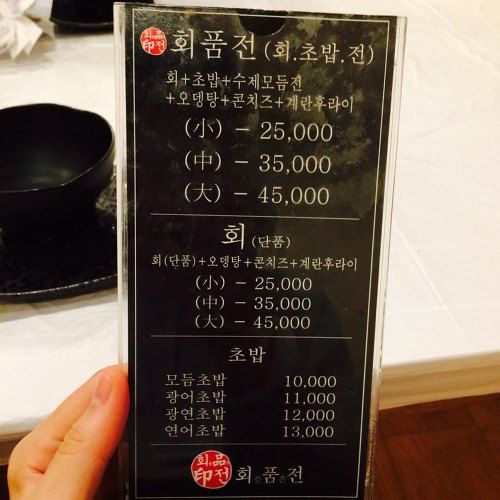 회品 印전 회품전 (회.초밥.전)
회+초밥+수제모듬전
+오뎅탕+콘치즈+계란후라이
(小) - 25,000
(中) - 35,000
(大) - 45,000
회 (단품)
회(단품)+오뎅탕+콘치즈+계란후라이
(小) - 25,000
(中) - 35,000
(大) - 45,000
초밥
모듬초밥 10,000
광어초밥 11,000
광연초밥 12,000
연어초밥 13,000
회品 印전 회를품은전